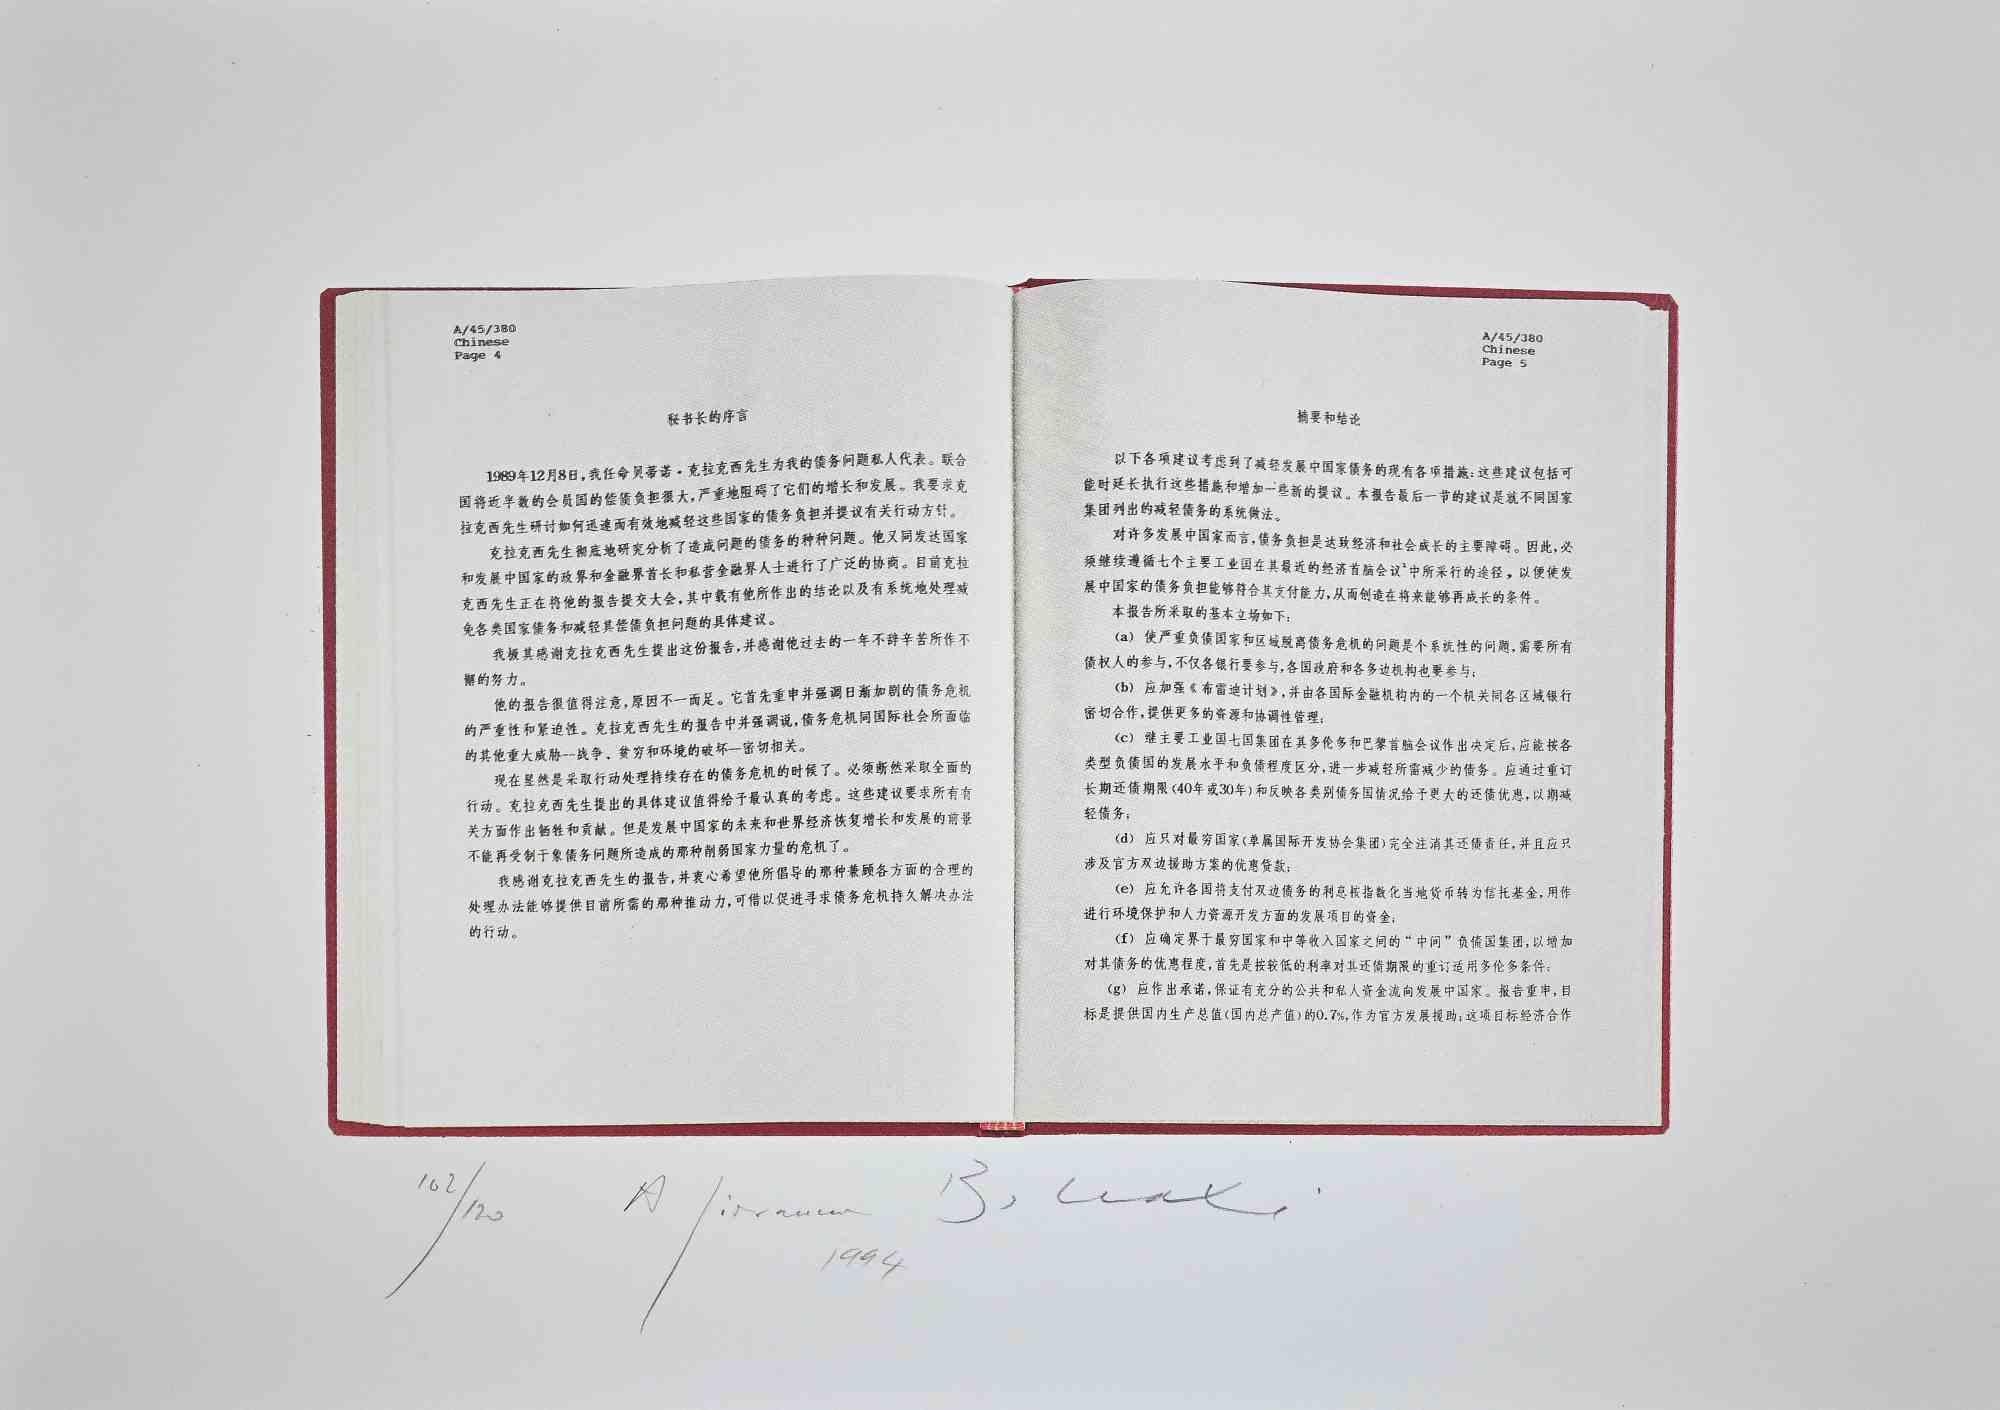 A/45/380
Chinese
Page 4
秘书长的序言
1989年12月8日,我任命贝蒂诺·克拉克西先生为我的债务问题私人代表。联合
国将近半数的会员国的偿债负担很大,严重地阻碍了它们的增长和发展。我要求克
拉克西先生研讨如何迅速而有效地减轻这些国家的债务负担并提议有关行动方针。
克拉克西先生彻底地研究分析了造成问题的债务的种种问题。他又同发达国家
和发展中国家的政界和金融界首长和私营金融界人士进行了广泛的协商。目前克拉
克西先生正在将他的报告提交大会,其中载有他所作出的结论以及有系统地处理减
免各类国家债务和减轻其偿债负担问题的具体建议。
我极其感谢克拉克西先生提出这份报告,并感谢他过去的一年不辞辛苦所作不
懈的努力。
他的报告很值得注意,原因不一而足。它首先重申并强调日渐加剧的债务危机
的严重性和紧迫性。克拉克西先生的报告中并强调说,债务危机同国际社会所面临
的其他重大威胁—战争、贫穷和环境的破坏—密切相关。
现在显然是采取行动处理持续存在的债务危机的时候了。必须断然采取全面的
行动。克拉克西先生提出的具体建议值得给予最认真的考虑。这些建议要求所有有
关方面作出牺牲和贡献。但是发展中国家的未来和世界经济恢复增长和发展的前景
不能再受制于象债务问题所造成的那种削弱国家力量的危机了。
我感谢克拉克西先生的报告,并衷心希望他所倡导的那种兼顾各方面的合理的
处理办法能够提供目前所需的那种推动力,可借以促进寻求债务危机持久解决办法
的行动。
A/45/380
Chinese
Page 5
摘要和结论
以下各项建议考虑到了减轻发展中国家债务的现有各项措施;这些建议包括可
能时延长执行这些措施和增加一些新的提议。本报告最后一节的建议是就不同国家
集团列出的减轻债务的系统做法。
对许多发展中国家而言,债务负担是达致经济和社会成长的主要障碍。因此,必
须继续遵循七个主要工业国在其最近的经济首脑会议¹中所采行的途径,以便使发
展中国家的债务负担能够符合其支付能力,从而创造在将来能够再成长的条件。
本报告所采取的基本立场如下:
(a) 使严重负债国家和区域脱离债务危机的问题是个系统性的问题,需要所有
债权人的参与,不仅各银行要参与,各国政府和各多边机构也要参与;
(b) 应加强《布雷迪计划》,并由各国际金融机构内的一个机关同各区域银行
密切合作,提供更多的资源和协调性管理;
(c) 继主要工业国七国集团在其多伦多和巴黎首脑会议作出决定后,应能按各
类型负债国的发展水平和负债程度区分,进一步减轻所需减少的债务。应通过重订
长期还债期限(40年或30年)和反映各类别债务国情况给予更大的还债优惠,以期减
轻债务;
(d) 应只对最穷国家(单属国际开发协会集团)完全注消其还债责任,并且应只
涉及官方双边援助方案的优惠贷款;
(e) 应允许各国将支付双边债务的利息按指数化当地货币转为信托基金,用作
进行环境保护和人力资源开发方面的发展项目的资金;
(f) 应确定界于最穷国家和中等收入国家之间的“中间”负债国集团,以增加
对其债务的优惠程度,首先是按较低的利率对其还债期限的重订适用多伦多条件;
(g) 应作出承诺,保证有充分的公共和私人资金流向发展中国家。报告重申,目
标是提供国内生产总值(国内总产值)的0.7%,作为官方发展援助;这项目标经济合作
102/120
A
1994